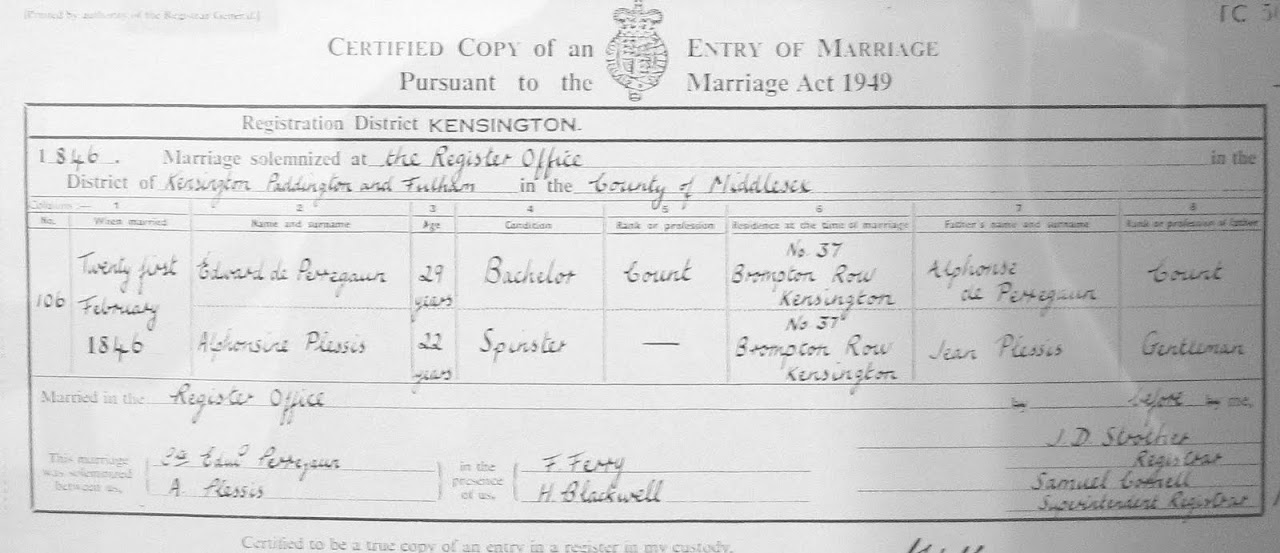 [Printed by authority of the Registrar General.]
CERTIFIED COPY of an ENTRY OF MARRIAGE
Pursuant to the Marriage Act 1949
Registration District KENSINGTON.
1846. Marriage solemnized at the Register Office in the
District of Kensington Paddington and Fulham in the County of Middlesex
Column :— 1 2 3 4 5 6 7 8
No. When married Name and surname Age Condition Rank or profession Residence at the time of marriage Father's name and surname Rank or profession of father
106
Twenty first
February
1846
Edward de Perregaun
29
years
Bachelor
Count
No. 37
Brompton Row
Kensington
Alphonse
de Perregaun
Count
Alphonsine Plessis
22
years
Spinster
—
No. 37
Brompton Row
Kensington
Jean Plessis
Gentleman
Married in the Register Office by before by me,
This marriage
was solemnized
between us,
Edwd Perregaun
A. Plessis
in the
presence
of us,
F. Ferry
H. Blackwell
J. D. Strother
Registrar
Samuel Cornell
Superintendent Registrar
Certified to be a true copy of an entry in a register in my custody.